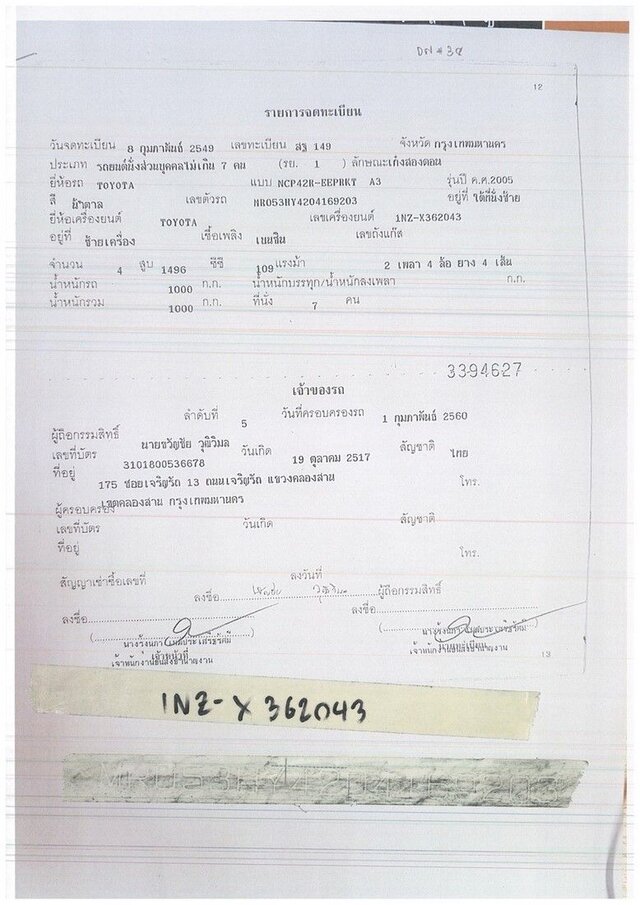 DN# 34
12
รายการจดทะเบียน
วันจดทะเบียน 8 กุมภาพันธ์ 2549 เลขทะเบียน สฐ 149 จังหวัด กรุงเทพมหานคร
ประเภท รถยนต์นั่งส่วนบุคคลไม่เกิน 7 คน (รย. 1 ) ลักษณะเก๋งสองตอน
ยี่ห้อรถ TOYOTA แบบ NCP42R-EEPRKT A3 รุ่นปี ค.ศ.2005
สี น้ำตาล เลขตัวรถ MR053HY4204169203 อยู่ที่ ใต้ที่นั่งซ้าย
ยี่ห้อเครื่องยนต์ TOYOTA เลขเครื่องยนต์ 1NZ-X362043
อยู่ที่ ซ้ายเครื่อง เชื้อเพลิง เบนซิน เลขถังแก๊ส
จำนวน 4 สูบ 1496 ซีซี 109 แรงม้า 2 เพลา 4 ล้อ ยาง 4 เส้น
น้ำหนักรถ 1000 ก.ก. น้ำหนักบรรทุก/น้ำหนักลงเพลา ก.ก.
น้ำหนักรวม 1000 ก.ก. ที่นั่ง 7 คน
3394627
เจ้าของรถ
ลำดับที่ 5 วันที่ครอบครองรถ 1 กุมภาพันธ์ 2560
ผู้ถือกรรมสิทธิ์ นายขวัญชัย วุฒิวิมล
เลขที่บัตร 3101800536678 วันเกิด 19 ตุลาคม 2517 สัญชาติ ไทย
ที่อยู่ 175 ซอยเจริญรัถ 13 ถนนเจริญรัถ แขวงคลองสาน โทร.
เขตคลองสาน กรุงเทพมหานคร
ผู้ครอบครอง
เลขที่บัตร วันเกิด สัญชาติ
ที่อยู่ โทร.
สัญญาเช่าซื้อเลขที่ ลงวันที่
ลงชื่อ ผู้ถือกรรมสิทธิ์
ลงชื่อ ลงชื่อ
เจ้าหน้าที่ นายทะเบียน
เจ้าพนักงานขนส่งชำนาญงาน เจ้าพนักงานขนส่งชำนาญงาน
13
1NZ-X 362043